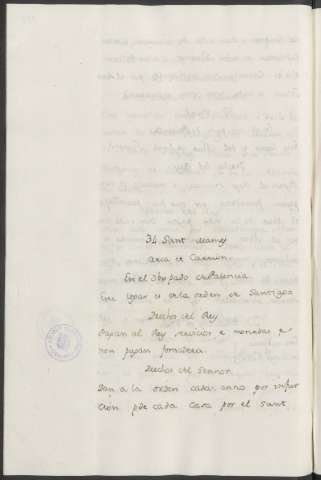 34 Sant mames
cerca de Carrion.
En el Obispado de Palencia
Este logar es de la orden de Santiago
Derechos del Rey
Pagan al Rey servicios e monedas e
non pagan fonsadera.
Derechos del Sennor.
Dan a la orden cada anno por infur
cion por cada casa por el Sant